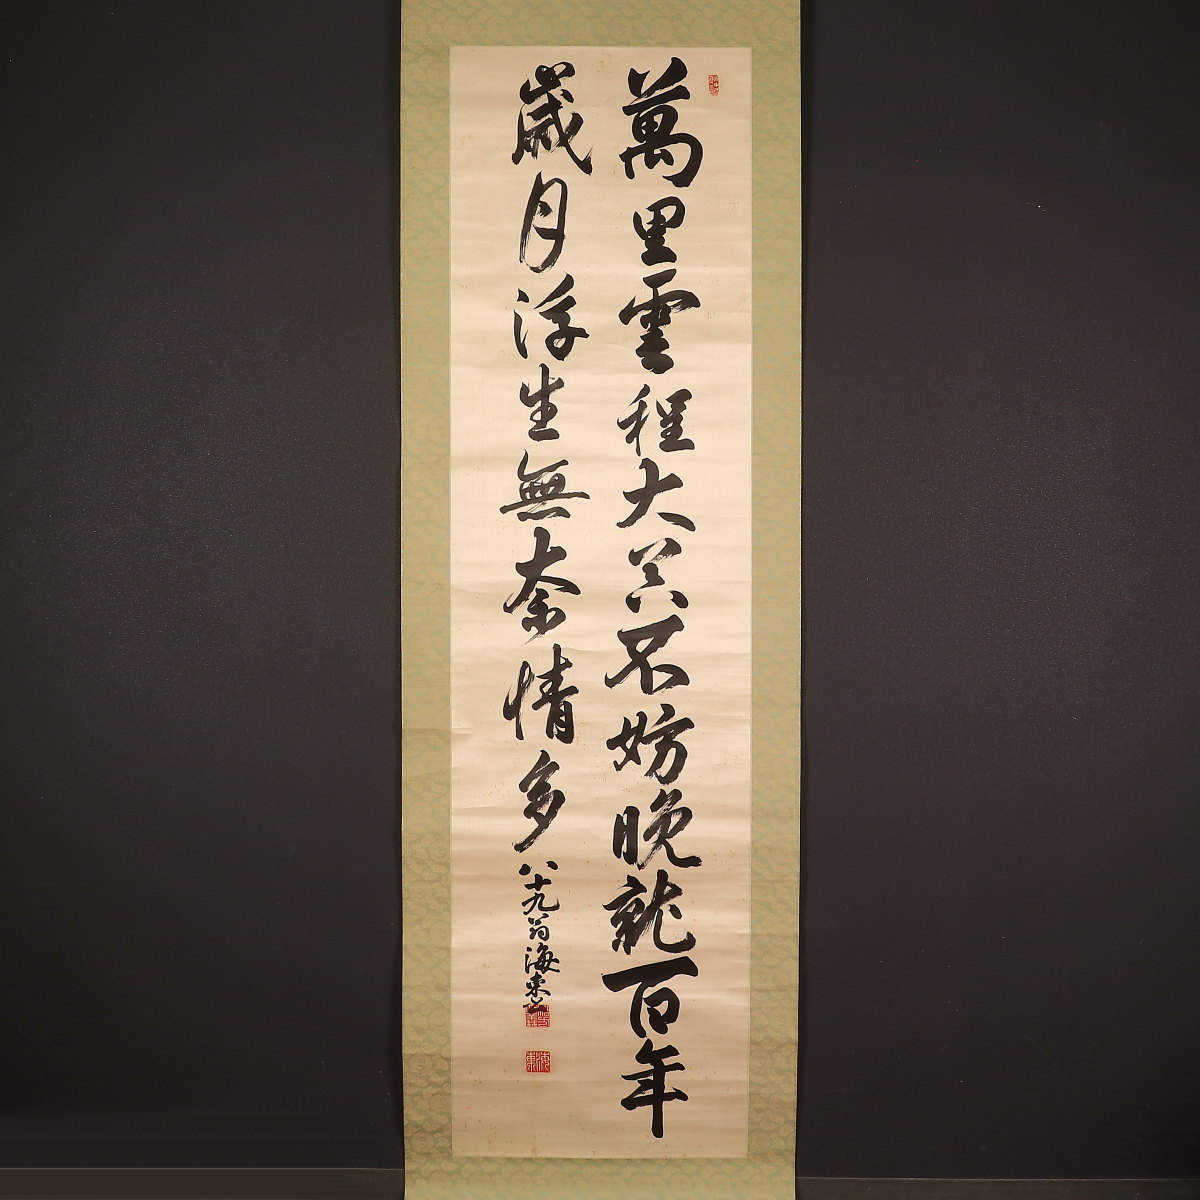 萬里雲程大器不妨晚就百年
歲月浮生無奈情多
八十九翁海東
海東